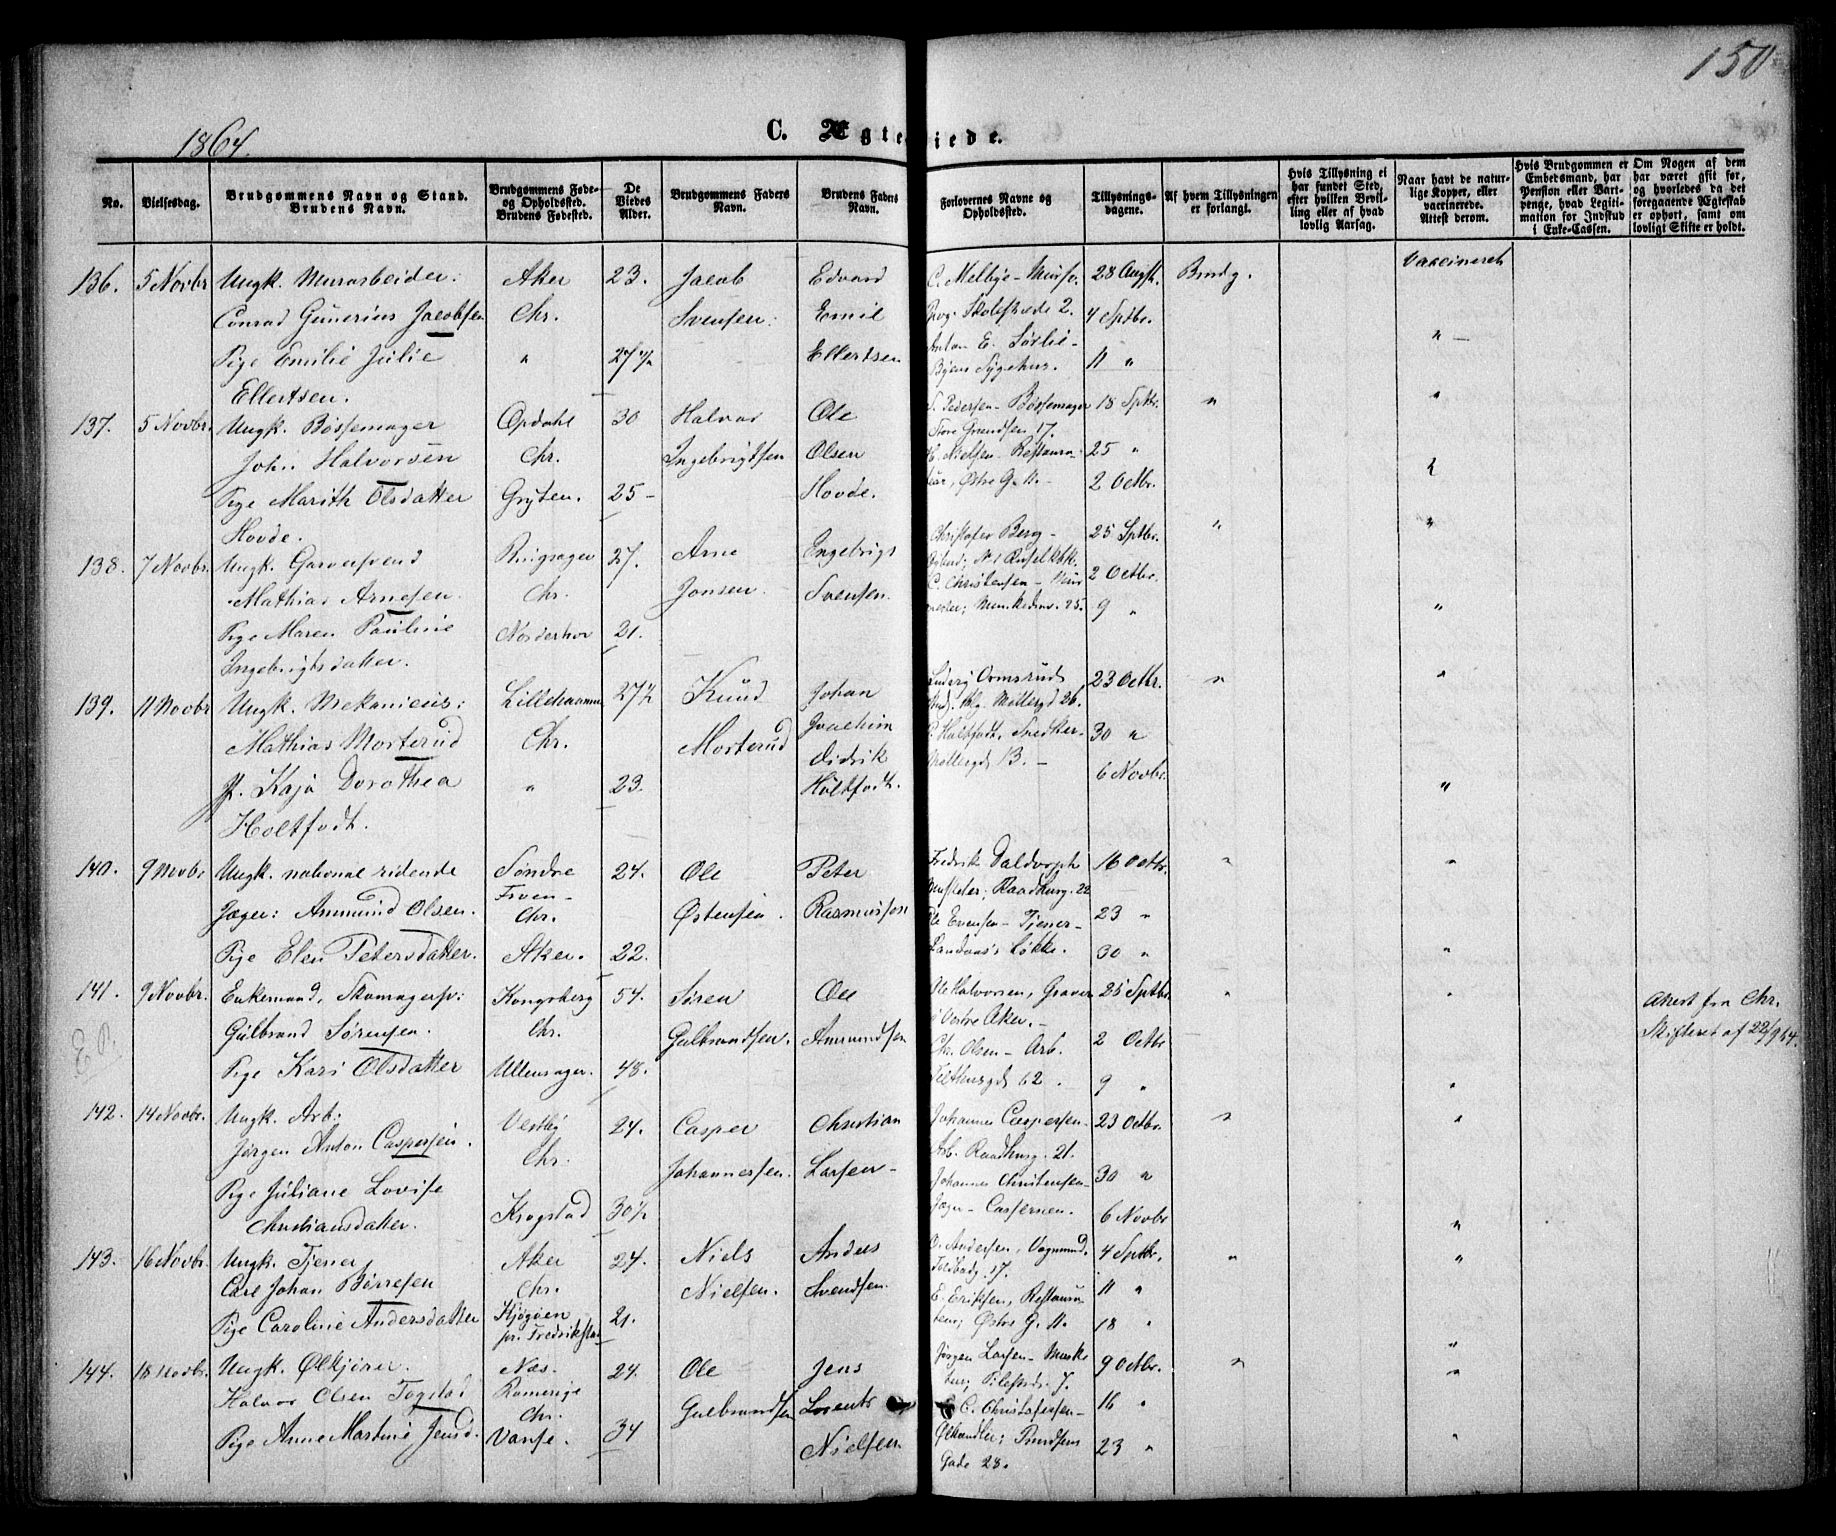 150
1864.
C. Ægteviede.
No. Vielsesdag. Brudgommens Navn og Stand. Brudens Navn. Brudgommens Føde- og Opholdssted. Brudens Fødested. De Viedes Alder. Brudgommens Faders Navn. Brudens Faders Navn. Forlovernes Navne og Opholdssted. Tillysnings-dagene. Af hvem Tillysningen er forlangt. Hvis Tillysning ei har fundet Sted, efter hvilken Bevilling eller af hvad lovlig Aarsag. Naar havt de naturlige Kopper, eller vaccinerede. Attest derom. Hvis Brudgommen er Embedsmand, har Pension eller Vartpenge, hvad Legitimation for Indskud i Enke-Cassen. Om Nogen af dem har været gift før, og hvorledes da det foregaaende Ægteskab er ophørt, samt om lovligt Skifte er holdt.
136. 5 Novbr Ungk. Murarbeider: Aker 23. Jacob Edvard C. Melbye - 28 Augst. Brudg. Vaccineret
Conrad Gunerius Jacobsen Chr. Svensen. Emil Skolestræde 2. 4 Sptbr.
Pige Emilie Julie " 27 Ellertsen Anton E. Sørlie - 11 " "
Ellertsen. Byens Sygehus.
137. 5 Novbr. Ungk. Bøssemager Opdahl 30 Halvor Ole Pedersen - Bøssemager 18 Sptbr. " "
John Halvorsen Chr. Ingebrigtsen Olsen Store Grændsen 17. 25 "
Pige Marith Olsdatter Gryten. 25 - Hovde. Nielsen - Restaura- 2 Octbr.
Hovde. Østre G. "
138. 7 Novbr. Ungk. Garversvend Ringsager 27. Arne Engebrigt Christofer Berg - 25 Sptbr. " "
Mathias Arnesen. Chr. Jonsen. Svensen. C. Christensen - 2 Octbr.
Pige Maren Pauline Norderhov 21. Munkedmv. 25. 9 " "
Ingebrigtsdatter.
139. 11 Novbr Ungk. Mekanicus: Lillehammer 27½ Knud Johan Ludvig Ormsrud 23 Octbr. " "
Mathias Morterud Chr. Morterud Joachim Møllergd 26. 30 "
P. Kaja Dorothea " 23. Didrik Holtfodt, Snedker 6 Novbr. "
Holtfodt. Holtfodt. Møllergd 13. -
140. 9 Novbr Ungk. national ridende Søndre 24. Ole Peter Fredrik Daldorph 16 Octbr. " "
Jæger: Ammund Olsen. Froen - Chr. Østensen. Rasmussen Raadhusg. 22 23 "
Pige Elen Petersdatter. Aker. 22. Ole Evensen - Tjener 30 " "
Løkke.
141. 9 Novbr. Enkemand, Skomagersv: Kongsberg 54. Søren Ole Ole Halvorsen, Graver 25 Sptbr. " " Attest fra Chr.
Gulbrand Sørensen. Chr. Gulbrandsen. Ammundsen i Vestre Aker. - 2 Octbr Skifteret af 22/9 64.
E. P.
Pige Kari Olsdatter Ullensager. 48. Chr. Olsen - Arb. 9 " "
62.
142. 14 Novbr. Ungk. Arb: Vestby 24. Casper Christian Johannes Caspersen - 23 Octbr. " "
Jørgen Anton Caspersen. Chr. Johannessen. Larsen - Arb. Raadhusg. 21. 30 "
Pige Juliane Lovise Krogstad 30½ Johannes Christensen - 6 Novbr "
Christiansdatter. Jæger - Casernen.
143. 16 Novbr. Ungk. Tjener Aker 24. Niels Anders Andersen, Vognmand. 4 Sptbr. " "
Carl Johan Børresen Chr. Nielsen. Svendsen. Toldbodg. 17. 11 "
Pige Caroline Andersdatter Kjøgøen pr. Fredrikstad 21. E. Eriksen, Restaura- 18 " "
Østre G.
144. 18 Novbr. Ungk. Ølkjører. Næs 24. Ole Jens Jørgen Larsen - 9 Octbr. " "
Halvor Olsen Togstad Romerige Chr. Gulbrandsen Lorents Pilestrd. 7. 16 "
Pige Anne Martine Jensd. Vanse. 34 Nielsen C. Christofersen - 23 " "
Ølhandler; Gade 28.